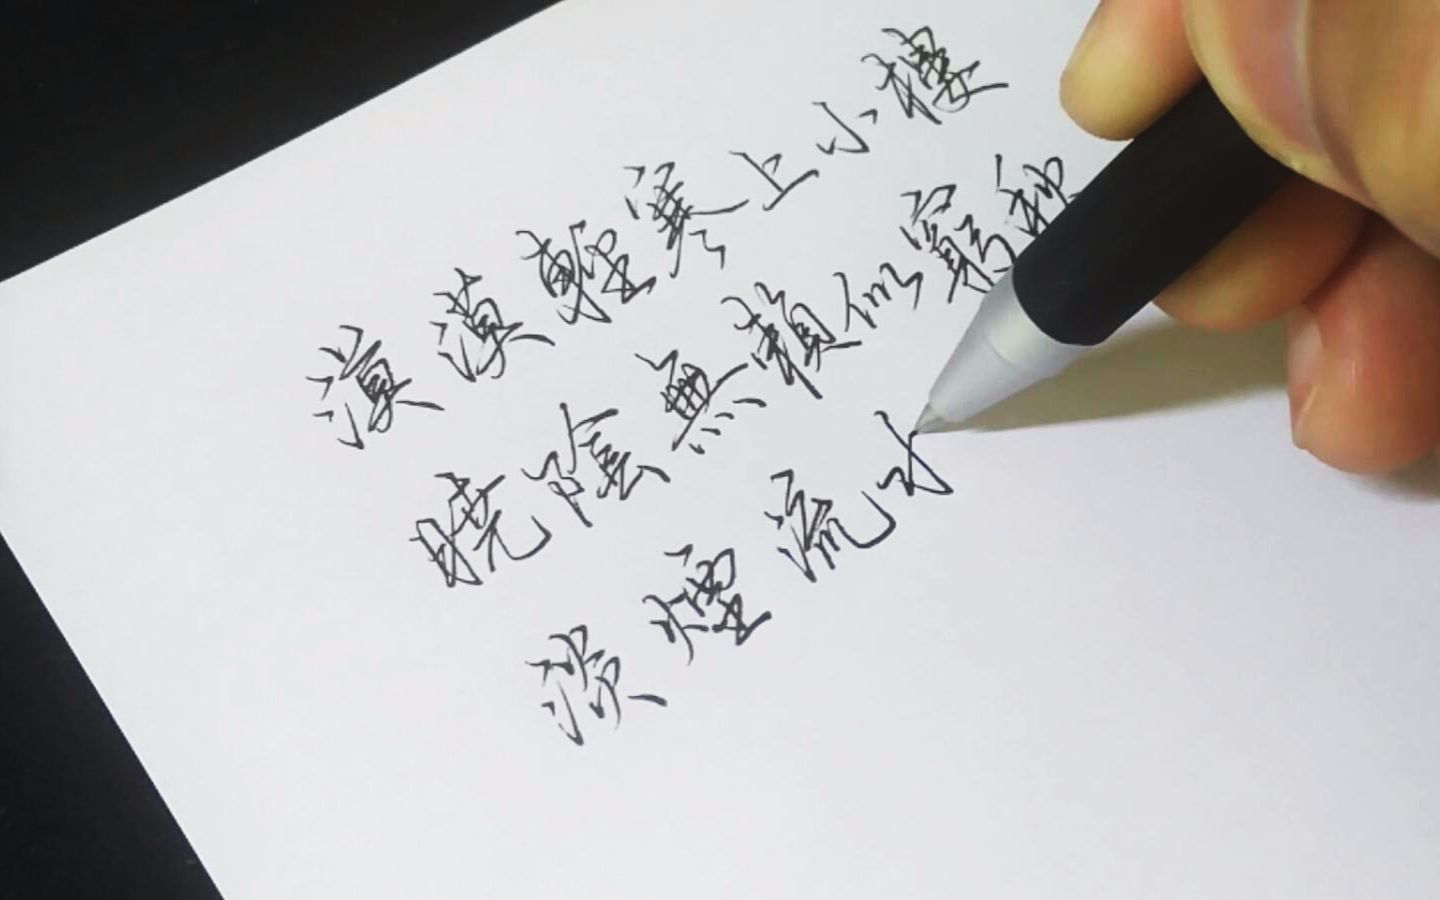 漠漠輕寒上小樓
曉陰無賴似窮秋
淡煙流水